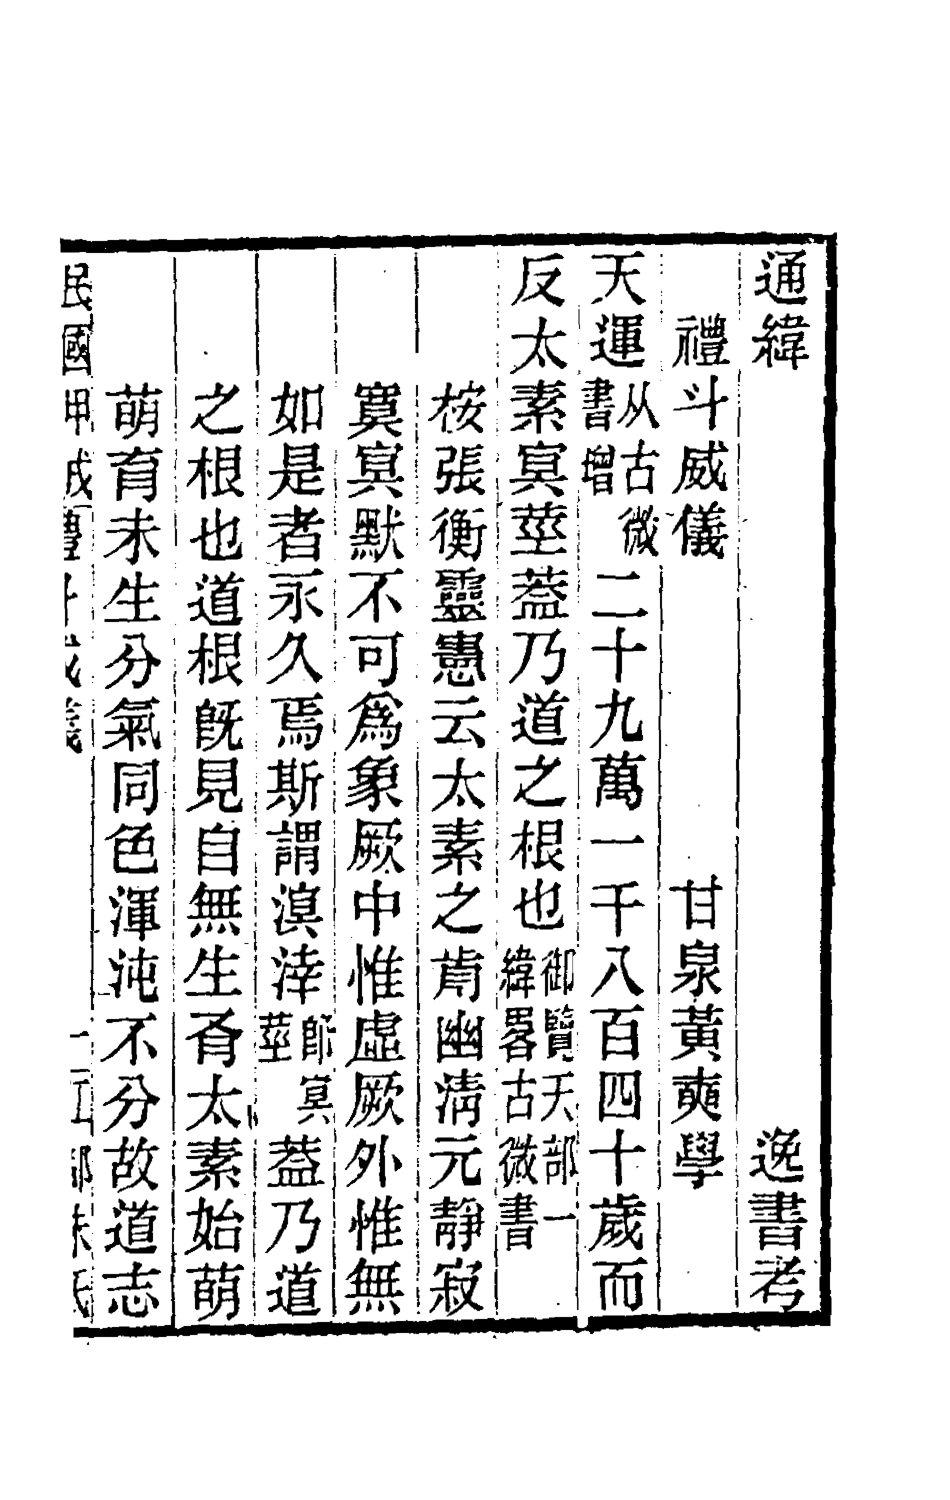 通緯　逸書考
禮斗威儀　甘泉黃奭學
天運从古微書增二十九萬一千八百四十歲而
反太素冥莖葢乃道之根也御覽天部一緯畧古微書
桉張衡靈憲云太素之前幽淸元靜寂
寞冥默不可爲象厥中惟虛厥外惟無
如是者永久焉斯謂溟涬師冥莖葢乃道
之根也道根旣見自無生有太素始萌
萌育未生分氣同色渾沌不分故道志
民國甲戌禮斗威儀　一江都朱氏